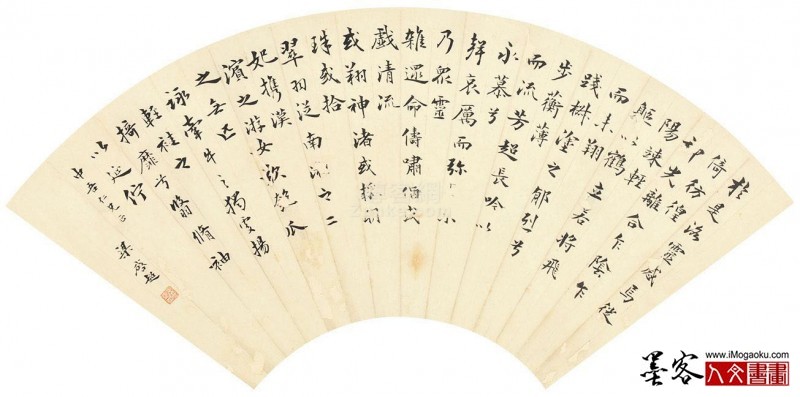 於是洛靈感焉徙
倚彷徨
神光離合乍陰乍
陽竦輕
軀以鶴立若將飛
而未翔
踐椒塗之郁烈兮
步蘅薄
而流芳超長吟以
永慕兮
聲哀厲而弥長尔
乃眾靈
雜遝命儔嘯侶或
戲清流
或翔神渚或採明
珠或拾
翠羽從南湘之二
妃攜漢
濱之游女歎匏瓜
之無匹
詠牽牛之獨處揚
輕袿之
猗靡兮翳脩袖
以延佇
仁兄正
梁啟超
墨客
www.iMogaoku.com
人文書畫